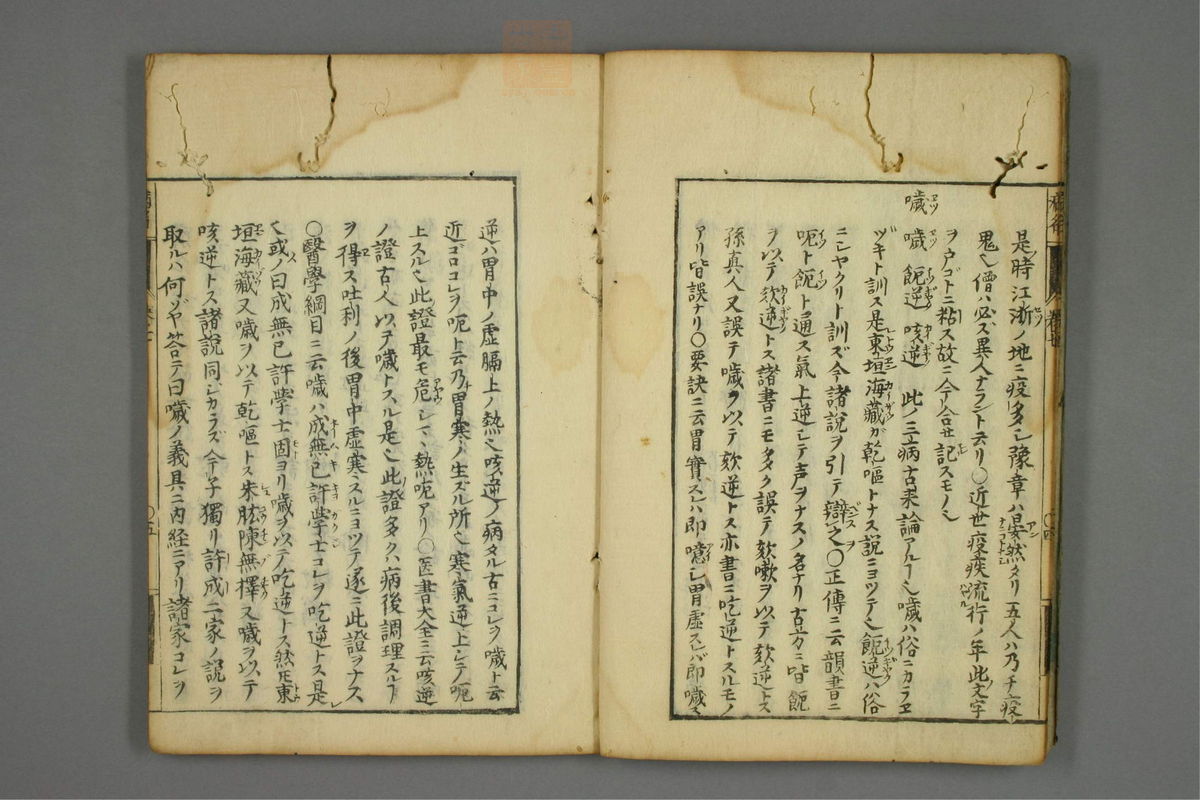 是時江浙ノ地ニ疫多シ豫章ハ晏然タリ五人ハ乃チ疫
鬼也僧ハ必ズ異人ナラント云リ○近世疫疾流行ノ年此文字
ヲ戸ゴトニ粘ス故ニ今合せ記スモノ也
噦 噦 飥逆 咳逆 此ノ三病古来論アルヿ也噦ハ俗ニカラヱ
ヅキト訓ス是東垣海藏ガ乾嘔トナス説ニヨツテ也飥逆ハ俗
ニシヤクリト訓ズ今諸説ヲ引テ辯之○正傳ニ云韻書ニ
呃ト飥ト通ス氣上逆シテ声ヲナスノ名ナリ古方ニ皆飥
ヲ以テ欬逆トス諸書ニモ多ク誤テ欬嗽ヲ以テ欬逆トス
孫真人又誤テ噦ヲ以テ欬逆トス亦書ニ吃逆トスルモノ
アリ皆誤ナリ○要訣ニ云胃實スレハ即噫シ胃虚スレバ即噦ス
逆ハ胃中ノ虚膈上ノ熱也咳逆ノ病タル古ニコレヲ噦ト云
近ゴロコレヲ呃ト云乃胃寒ノ生ズル所也寒氣逆上シテ呃
上スル也此證最モ危シ又熱呃アリ○医書大全ニ云咳逆
ノ證古人以テ噦トスル是也此證多クハ病後調理スルヿ
ヲ得ス吐利ノ後胃中虚寒スルニヨツテ遂ニ此證ヲナス
○醫學綱目ニ云噦ハ成無已許學士コレヲ吃逆トス是
也或ノ曰成無已許學士固ヨリ噦ヲ以テ吃逆トス然𪜈東
垣海藏又噦ヲ以テ乾嘔トス朱肱陳無擇又噦ヲ以テ
咳逆トス諸説同シカラズ今子獨リ許成二家ノ説ヲ
取ルハ何ゾヤ答テ曰噦ノ義具ニ内経ニアリ諸家コレヲ